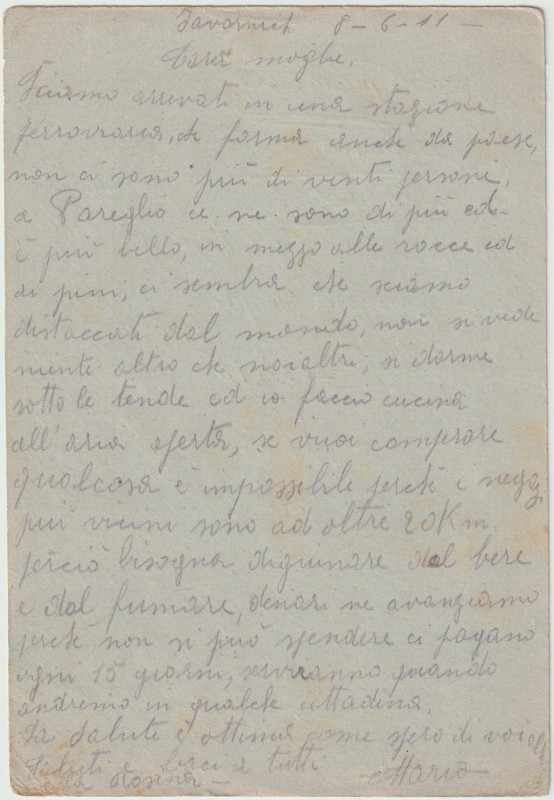 Javornik 8-6-41-
Cara moglie,
Siamo arrivati in una stazione
ferroviaria, che forma anche da paese,
non ci sono più di venti persone,
a Pareglio ce ne sono di più ed
è più bello, in mezzo alle rocce ed
di pini, ci sembra che siamo
distaccati dal mondo, non si vede
niente altro che noialtri, si dorme
sotto le tende ed io faccio cucina
all'aria aperta, se vuoi comprare
qualcosa è impossibile perché i negoz
più vicini sono ad oltre 20Km.
perciò bisogna digiunare dal bere
e dal fumare, denari ne avanziamo
perché non si può spendere ci pagano
ogni 15 giorni, serviranno quando
andremo in qualche cittadina.
La salute è ottima come spero di voi
Saluti e baci a tutti Mario
e a Rosina-